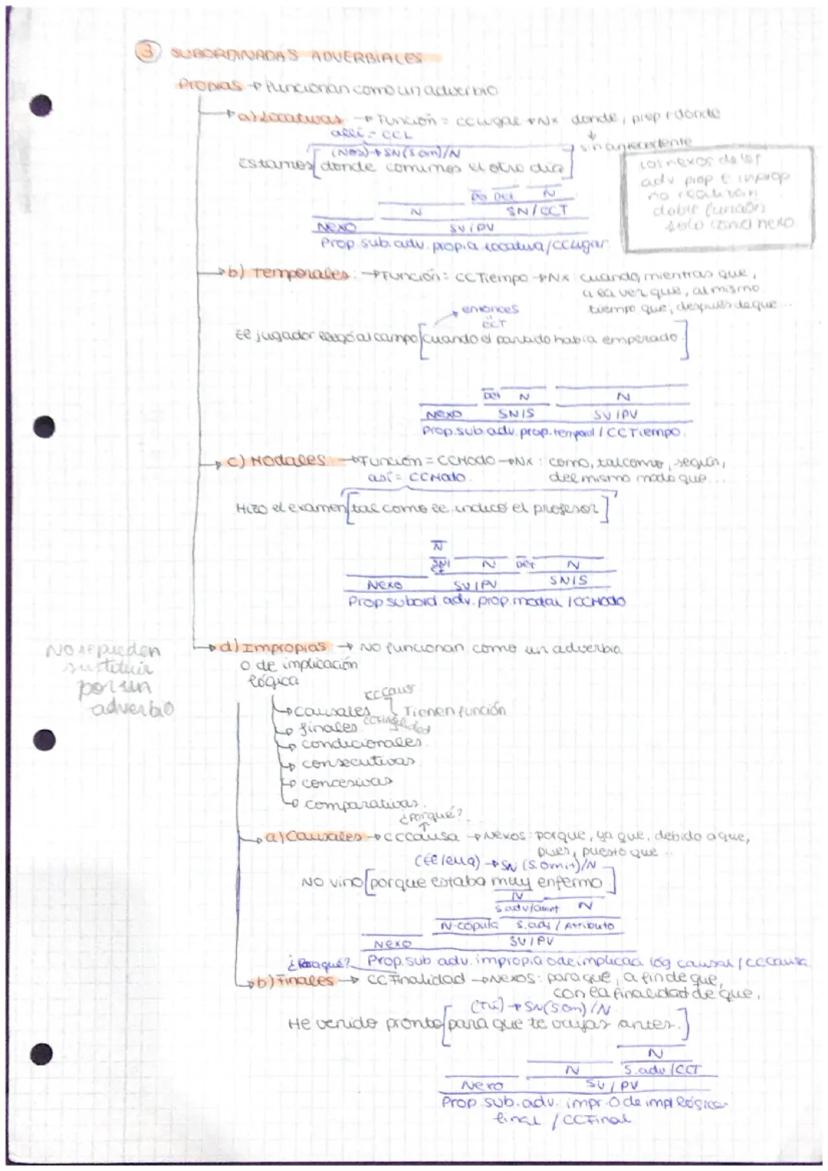 ③ SUBORDINADAS ADVERBIALES
Propias → funcionan como un adverbio
a) Locativas → Función = CCLugar → Nx donde, prep + donde
allí = CCL
sin antecedente
(Nos) → SN(S om)/N
Estamos [donde comimos el otro día]
los nexos de las
adv prop e improp
no realizan
doble función
solo como nexo
Det N
N SN/CCT
Nexo SV/PV
Prop. sub. adv. propia locativa/CCLugar
b) Temporales: → Función = CCTiempo → Nx: cuando, mientras que,
a la vez que, al mismo
tiempo que, después de que...
entonces
CCT
El jugador llegó al campo [cuando el partido había empezado]
Det N N
Nexo SN/S SV/PV
Prop. sub. adv. prop. temporal / CCTiempo.
c) Modales → Función = CCModo → Nx: como, tal como, según,
así = CCModo del mismo modo que...
Hizo el examen [tal como le indicó el profesor]
N
N Det N
Nexo SV/PV SN/S
Prop subord adv. prop. modal / CCModo
No se pueden
sustituir
por un
adverbio
d) Impropias → No funcionan como un adverbio
o de implicación
lógica
CCCaus
causales Tienen función
finales
condicionales
consecutivas
concesivas
comparativas.
¿Porqué?
a) Causales → CCCausa → Nexos: porque, ya que, debido a que,
pues, puesto que...
(Él/ella) → SN (S. omit)/N
No vino [porque estaba muy enfermo]
N
S.adv/cuant N
N-cópula S.adj / Atributo
Nexo SV/PV
Prop. sub adv. impropia o de implicac lóg causal / CCCausa
¿Para qué?
b) Finales → CC Finalidad → Nexos: para que, a fin de que,
con la finalidad de que,
(Tú) → SN(S om) /N
He venido pronto [para que te vayas antes.]
N
N S.adv /CCT
Nexo SV/PV
Prop. sub. adv. impr. o de impl lógica
final / CCFinal